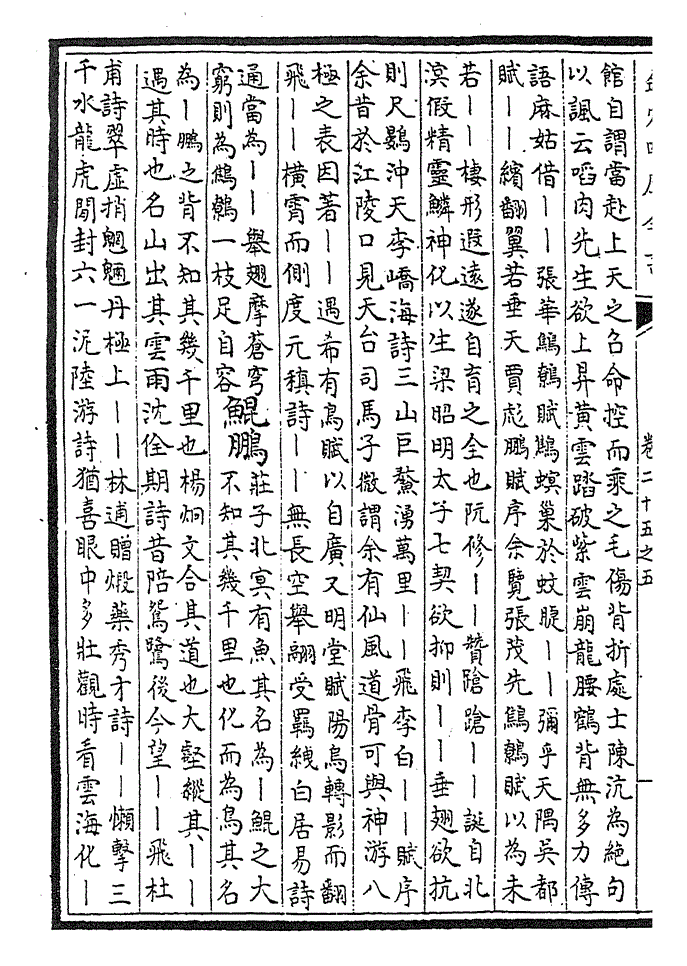 欽定四庫全書
卷二十五之五
館自謂當赴上天之召命控而乘之毛傷背折處士陳沆為絶句
以諷云啗肉先生欲上昇黄雲踏破紫雲崩龍腰鶴背無多力傳
語麻姑借丨丨張華鷦鷯賦鷦螟巢於蚊睫丨丨彌乎天隅吳都
賦丨丨繽翻翼若垂天賈彪鵬賦序余覽張茂先鷦鷯賦以為未
若丨丨棲形遐遠遂自育之全也阮修丨丨贊蹌蹌丨丨誕自北
溟假精靈鱗神化以生梁昭明太子七契欲抑則丨丨垂翅欲抗
則尺鷃沖天李嶠海詩三山巨鰲湧萬里丨丨飛李白丨丨賦序
余昔於江陵口見天台司馬子微謂余有仙風道骨可與神游八
極之表因著丨丨遇希有鳥賦以自廣又明堂賦陽烏轉影而翻
飛丨丨橫霄而側度元稹詩丨丨無長空舉翮受羈絏白居易詩
通當為丨丨舉翅摩蒼穹
窮則為鷦鷯一枝足自容
鯤鵬
莊子北冥有魚其名為丨鯤之大
不知其幾千里也化而為鳥其名
為丨鵬之背不知其幾千里也楊炯文合其道也大壑縱其丨丨
遇其時也名山出其雲雨沈佺期詩昔陪鴛鷺後今望丨丨飛杜
甫詩翠虛捎魍魎丹極上丨丨林逋贈煅藥秀才詩丨丨懶擊三
千水龍虎閒封六一泥陸游詩猶喜眼中多壯觀時看雲海化丨